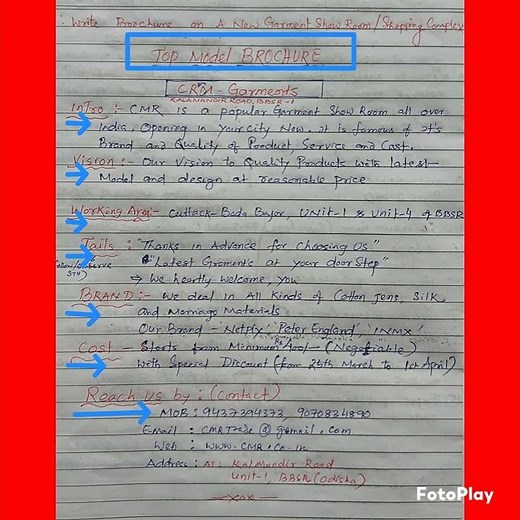 Write Brochure on A New Garment Show Room/Shopping Complex
Top Model BROCHURE
CRM - Garments
KALAMANDIR ROAD, BBSR-1
InTro :- CMR is a popular Garment Show Room all over
India, Opening in your City Now, it is famous of it's
Brand and Quality of Product, Service and Cast.
Vission :- Our Vission to Quality Products with latest
Model and design at reasonable price
Working Area:- Cuttack-Bada Bajar, UNit-1 & Unit-4 of BBSR
Tails : "Thanks in Advance for Choosing Us"
"Latest Garments at your door Step"
⇒ We heartly welcome, you
BRAND :- We deal in All Kinds of Cotton Jens, Silk
and Materials
Our Brand - Netply, 'Peter England', 'INMX'
Cost - Starts from Minimum Rs 400/- (Negotiable)
with Special Discount (from 25th March to 1st April)
Reach us by : (Contact)
MOB : 9437394373, 9070834890
Email : CMRTrade@gmail.com
Web : www.CMR.Co-in
Address : AT: Kalmandir Road
Unit-1, BBSR (Odisha)
FotoPlay